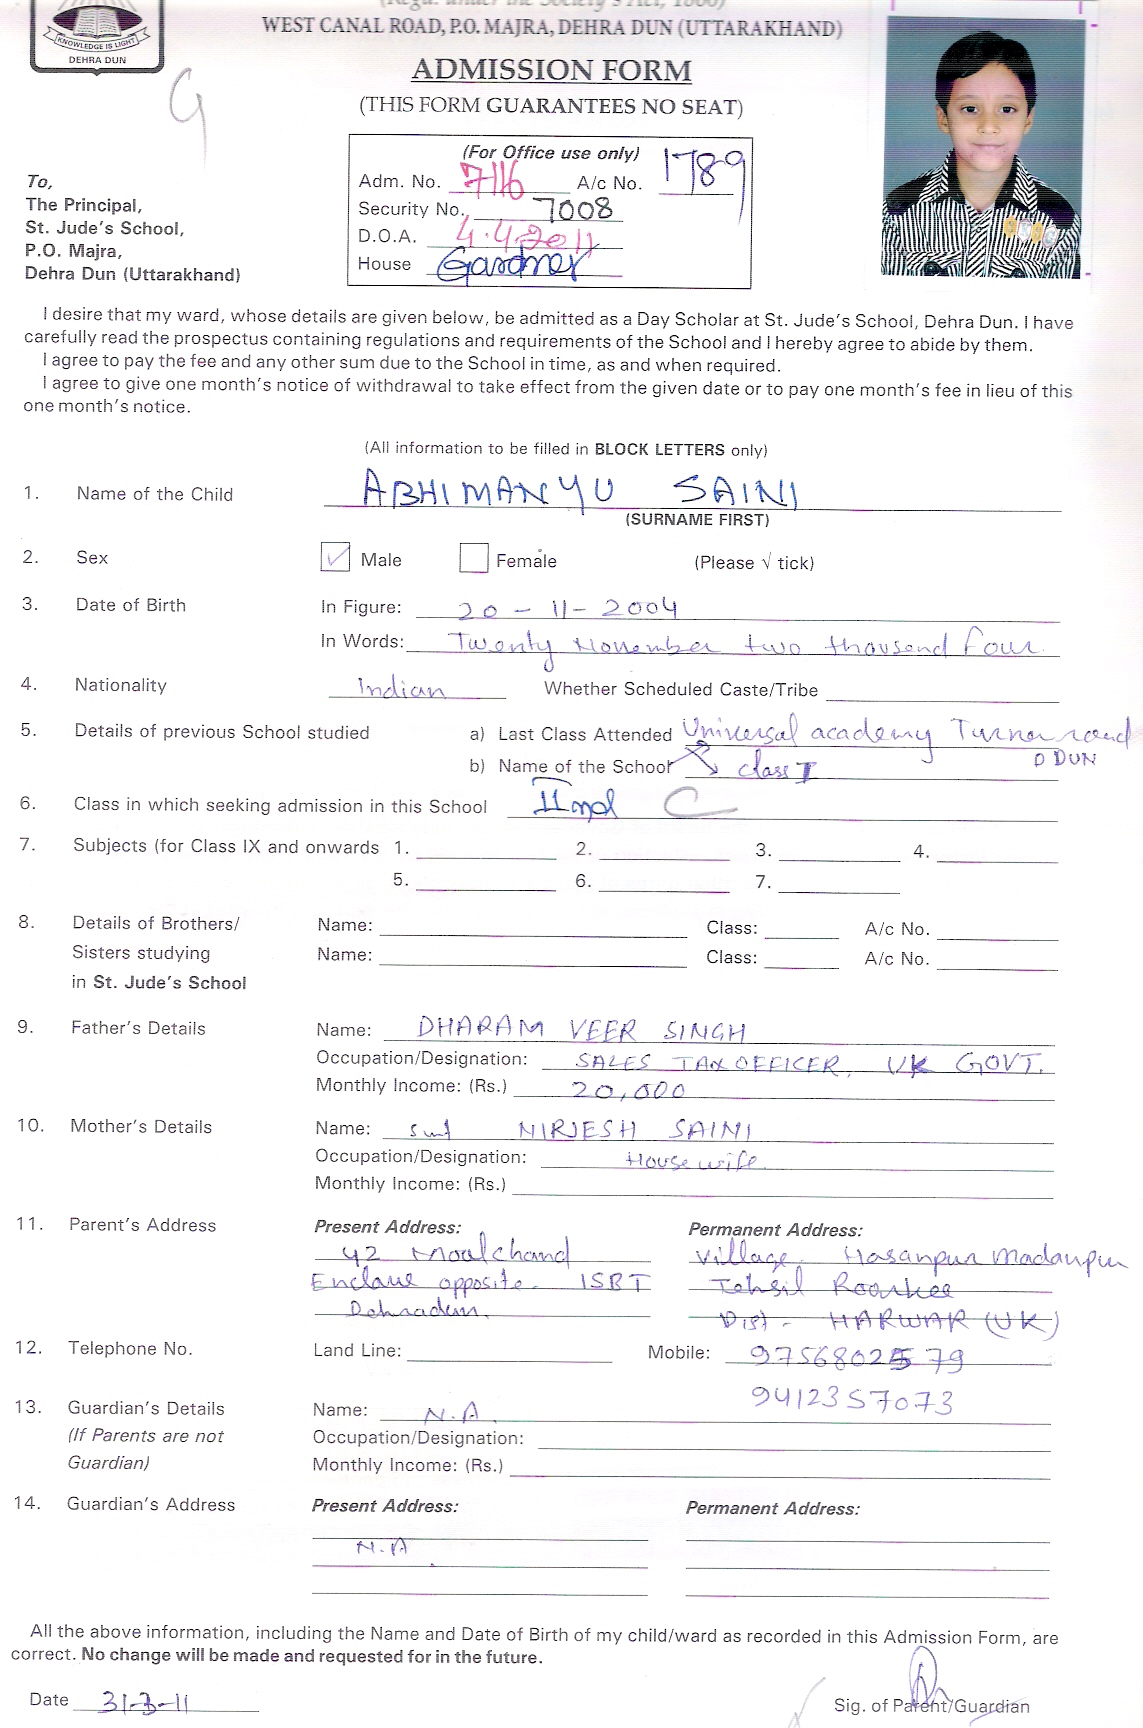 (Regd. under the Society's Act, 1860)
WEST CANAL ROAD, P.O. MAJRA, DEHRA DUN (UTTARAKHAND)
KNOWLEDGE IS LIGHT
DEHRA DUN
ADMISSION FORM
(THIS FORM GUARANTEES NO SEAT)
G
(For Office use only)
Adm. No. 7116 A/c No. 1789
Security No. 7008
D.O.A. 4.4.2011
House Gardner
To,
The Principal,
St. Jude's School,
P.O. Majra,
Dehra Dun (Uttarakhand)
I desire that my ward, whose details are given below, be admitted as a Day Scholar at St. Jude's School, Dehra Dun. I have
carefully read the prospectus containing regulations and requirements of the School and I hereby agree to abide by them.
I agree to pay the fee and any other sum due to the School in time, as and when required.
I agree to give one month's notice of withdrawal to take effect from the given date or to pay one month's fee in lieu of this
one month's notice.
(All information to be filled in BLOCK LETTERS only)
1. Name of the Child ABHIMANYU SAINI
(SURNAME FIRST)
2. Sex ✓ Male Female (Please √ tick)
3. Date of Birth In Figure: 20 - 11 - 2004
In Words: Twenty November two thousand Four
4. Nationality Indian Whether Scheduled Caste/Tribe
5. Details of previous School studied a) Last Class Attended Universal academy Turner road
D DUN
b) Name of the School class I
6. Class in which seeking admission in this School II C
7. Subjects (for Class IX and onwards 1. 2. 3. 4.
5. 6. 7.
8. Details of Brothers/ Name: Class: A/c No.
Sisters studying Name: Class: A/c No.
in St. Jude's School
9. Father's Details Name: DHARAM VEER SINGH
Occupation/Designation: SALES TAX OFFICER, UK GOVT.
Monthly Income: (Rs.) 20,000
10. Mother's Details Name: smt NIRJESH SAINI
Occupation/Designation: House wife
Monthly Income: (Rs.)
11. Parent's Address Present Address: Permanent Address:
42 Moolchand Village Hasanpur Madanpur
Enclave opposite. ISBT Tehsil Roorkee
Dehradun. Dist - HARWAR (UK)
12. Telephone No. Land Line: Mobile: 9756802579
9412357073
13. Guardian's Details Name: N.A.
(If Parents are not Occupation/Designation:
Guardian) Monthly Income: (Rs.)
14. Guardian's Address Present Address: Permanent Address:
N.A
All the above information, including the Name and Date of Birth of my child/ward as recorded in this Admission Form, are
correct. No change will be made and requested for in the future.
Date 31-3-11 Sig. of Parent/Guardian